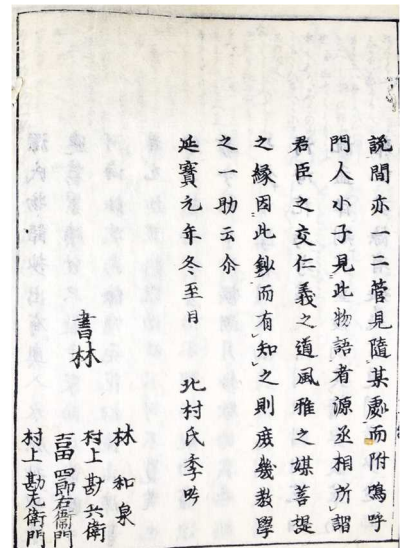 説間亦一二管見隨某處而附嗚呼
門人小子見此物語者源丞相所謂
君臣之交仁義之道風雅之媒菩提
之縁因此鈔而有知之則庶幾教學
之一助云尒
延寶元年冬至日　北村氏季吟
書林
林和泉
村上勘兵衛
吉田四郎右衛門
村上勘左衛門